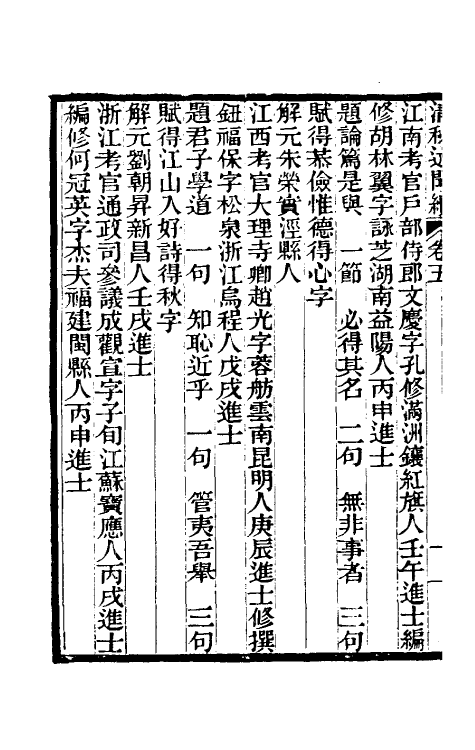 清秘述聞續 卷五
江南考官戶部侍郎文慶字孔修滿洲鑲紅旗人壬午進士編
修胡林翼字詠芝湖南益陽人丙申進士
題論篤是與 一節 必得其名 二句 無非事者 三句
賦得恭儉惟德得心字
解元朱榮實涇縣人
江西考官大理寺卿趙光字蓉舫雲南昆明人庚辰進士修撰
鈕福保字松泉浙江烏程人戊戌進士
題君子學道 一句 知恥近乎 一句 管夷吾舉 三句
賦得江山入好詩得秋字
解元劉朝昇新昌人壬戌進士
浙江考官通政司參議成觀宣字子旬江蘇寶應人丙戌進士
編修何冠英字杰夫福建閩縣人丙申進士